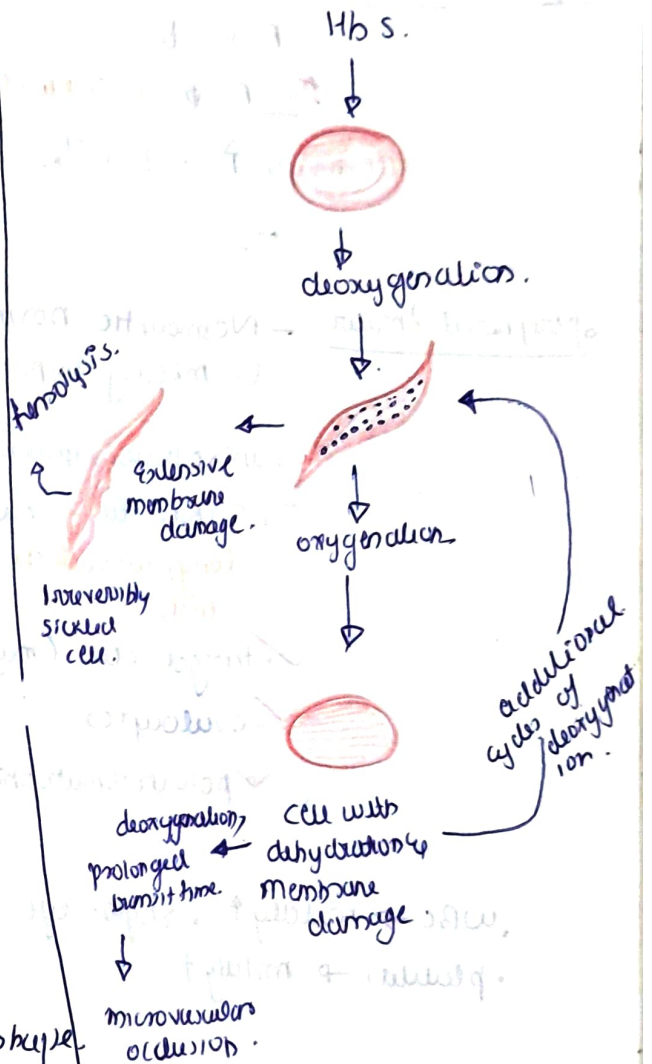 Hb S.
deoxygenation.
hemolysis.
Extensive
membrane
damage.
oxygenation
Irreversibly
sickled
cell.
additional
cycles of
deoxygenat
ion.
deoxygenation,
prolonged
transit time.
cell with
dehydration &
membrane
damage.
microvascular
occlusion.